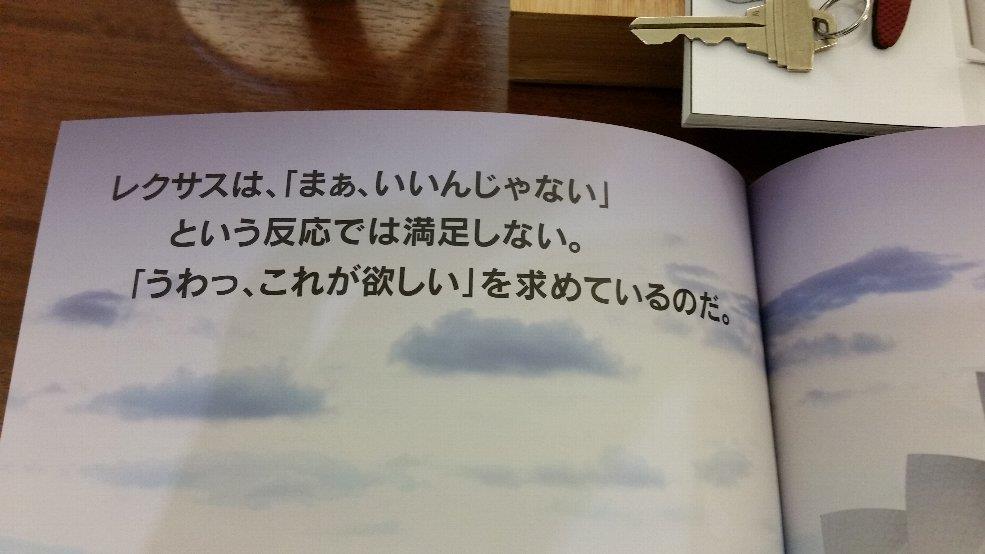 レクサスは、「まぁ、いいんじゃない」
という反応では満足しない。
「うわっ、これが欲しい」を求めているのだ。